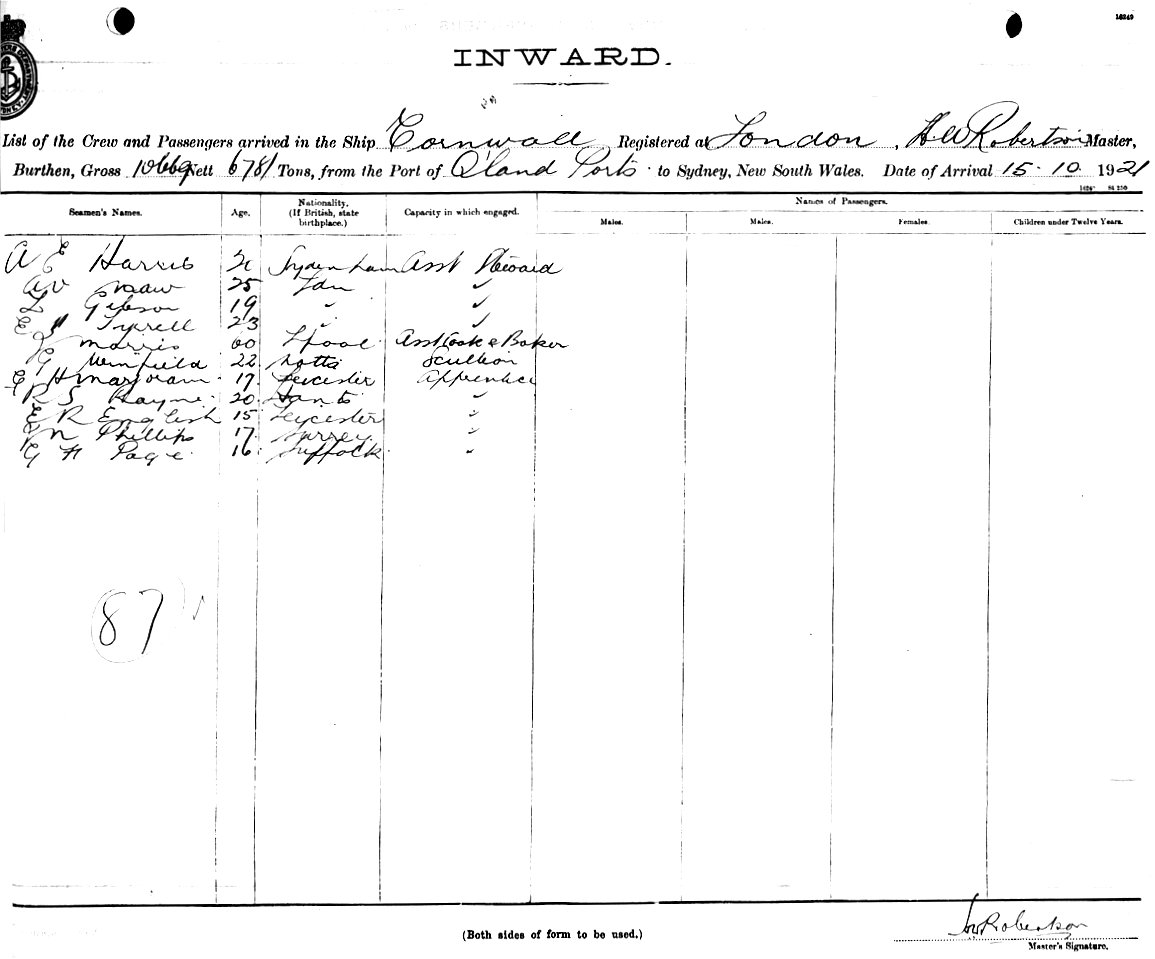 16249
INWARD.
List of the Crew and Passengers arrived in the Ship Cornwall Registered at London, H W Robertson Master,
Burthen, Gross 10669 Nett 6781 Tons, from the Port of Q'land Ports to Sydney, New South Wales. Date of Arrival 15 - 10 1921
Seamen's Names. Age. Nationality. (If British, state birthplace.) Capacity in which engaged. Names of Passengers.
Males. Males. Females. Children under Twelve Years.
A E Harris Sydenham Asst Steward
A V 25 Ldn "
L Gibson 19 " "
E Tyrrell 23 " "
J Morris 60 L'pool Asst Cook & Baker
G Winfield 22 Notts Scullion
E H Marjoram 17 Leicester Apprentice
R S Hayne 20 Hants "
E R English 15 Leicester "
N Phillips 17 Surrey "
G H Page 16 Suffolk "
87
(Both sides of form to be used.)
HW Robertson
Master's Signature.